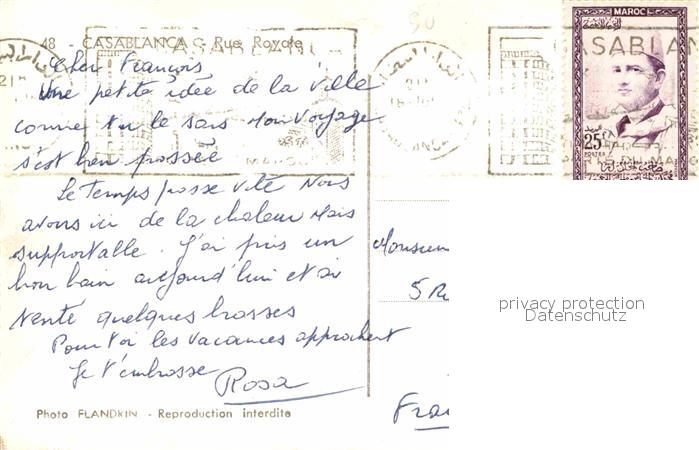 48 - CASABLANCA - Rue Royale
Cher François
Une petite idée de la ville
comme tu le sais Mon Voyage
s'est bien passée
Le temps passe vite Nous
avons ici de la chaleur Mais
supportable. J'ai pris un
bon bain aujourd'hui et ai
tenté quelques brasses
Pour toi les vacances approchent
Je t'embrasse
Rosa
Photo FLANDRIN - Reproduction interdite
MAROC
25F
POSTES
CASABLAN
Monsieur
5 R
Fra
privacy protection
Datenschutz